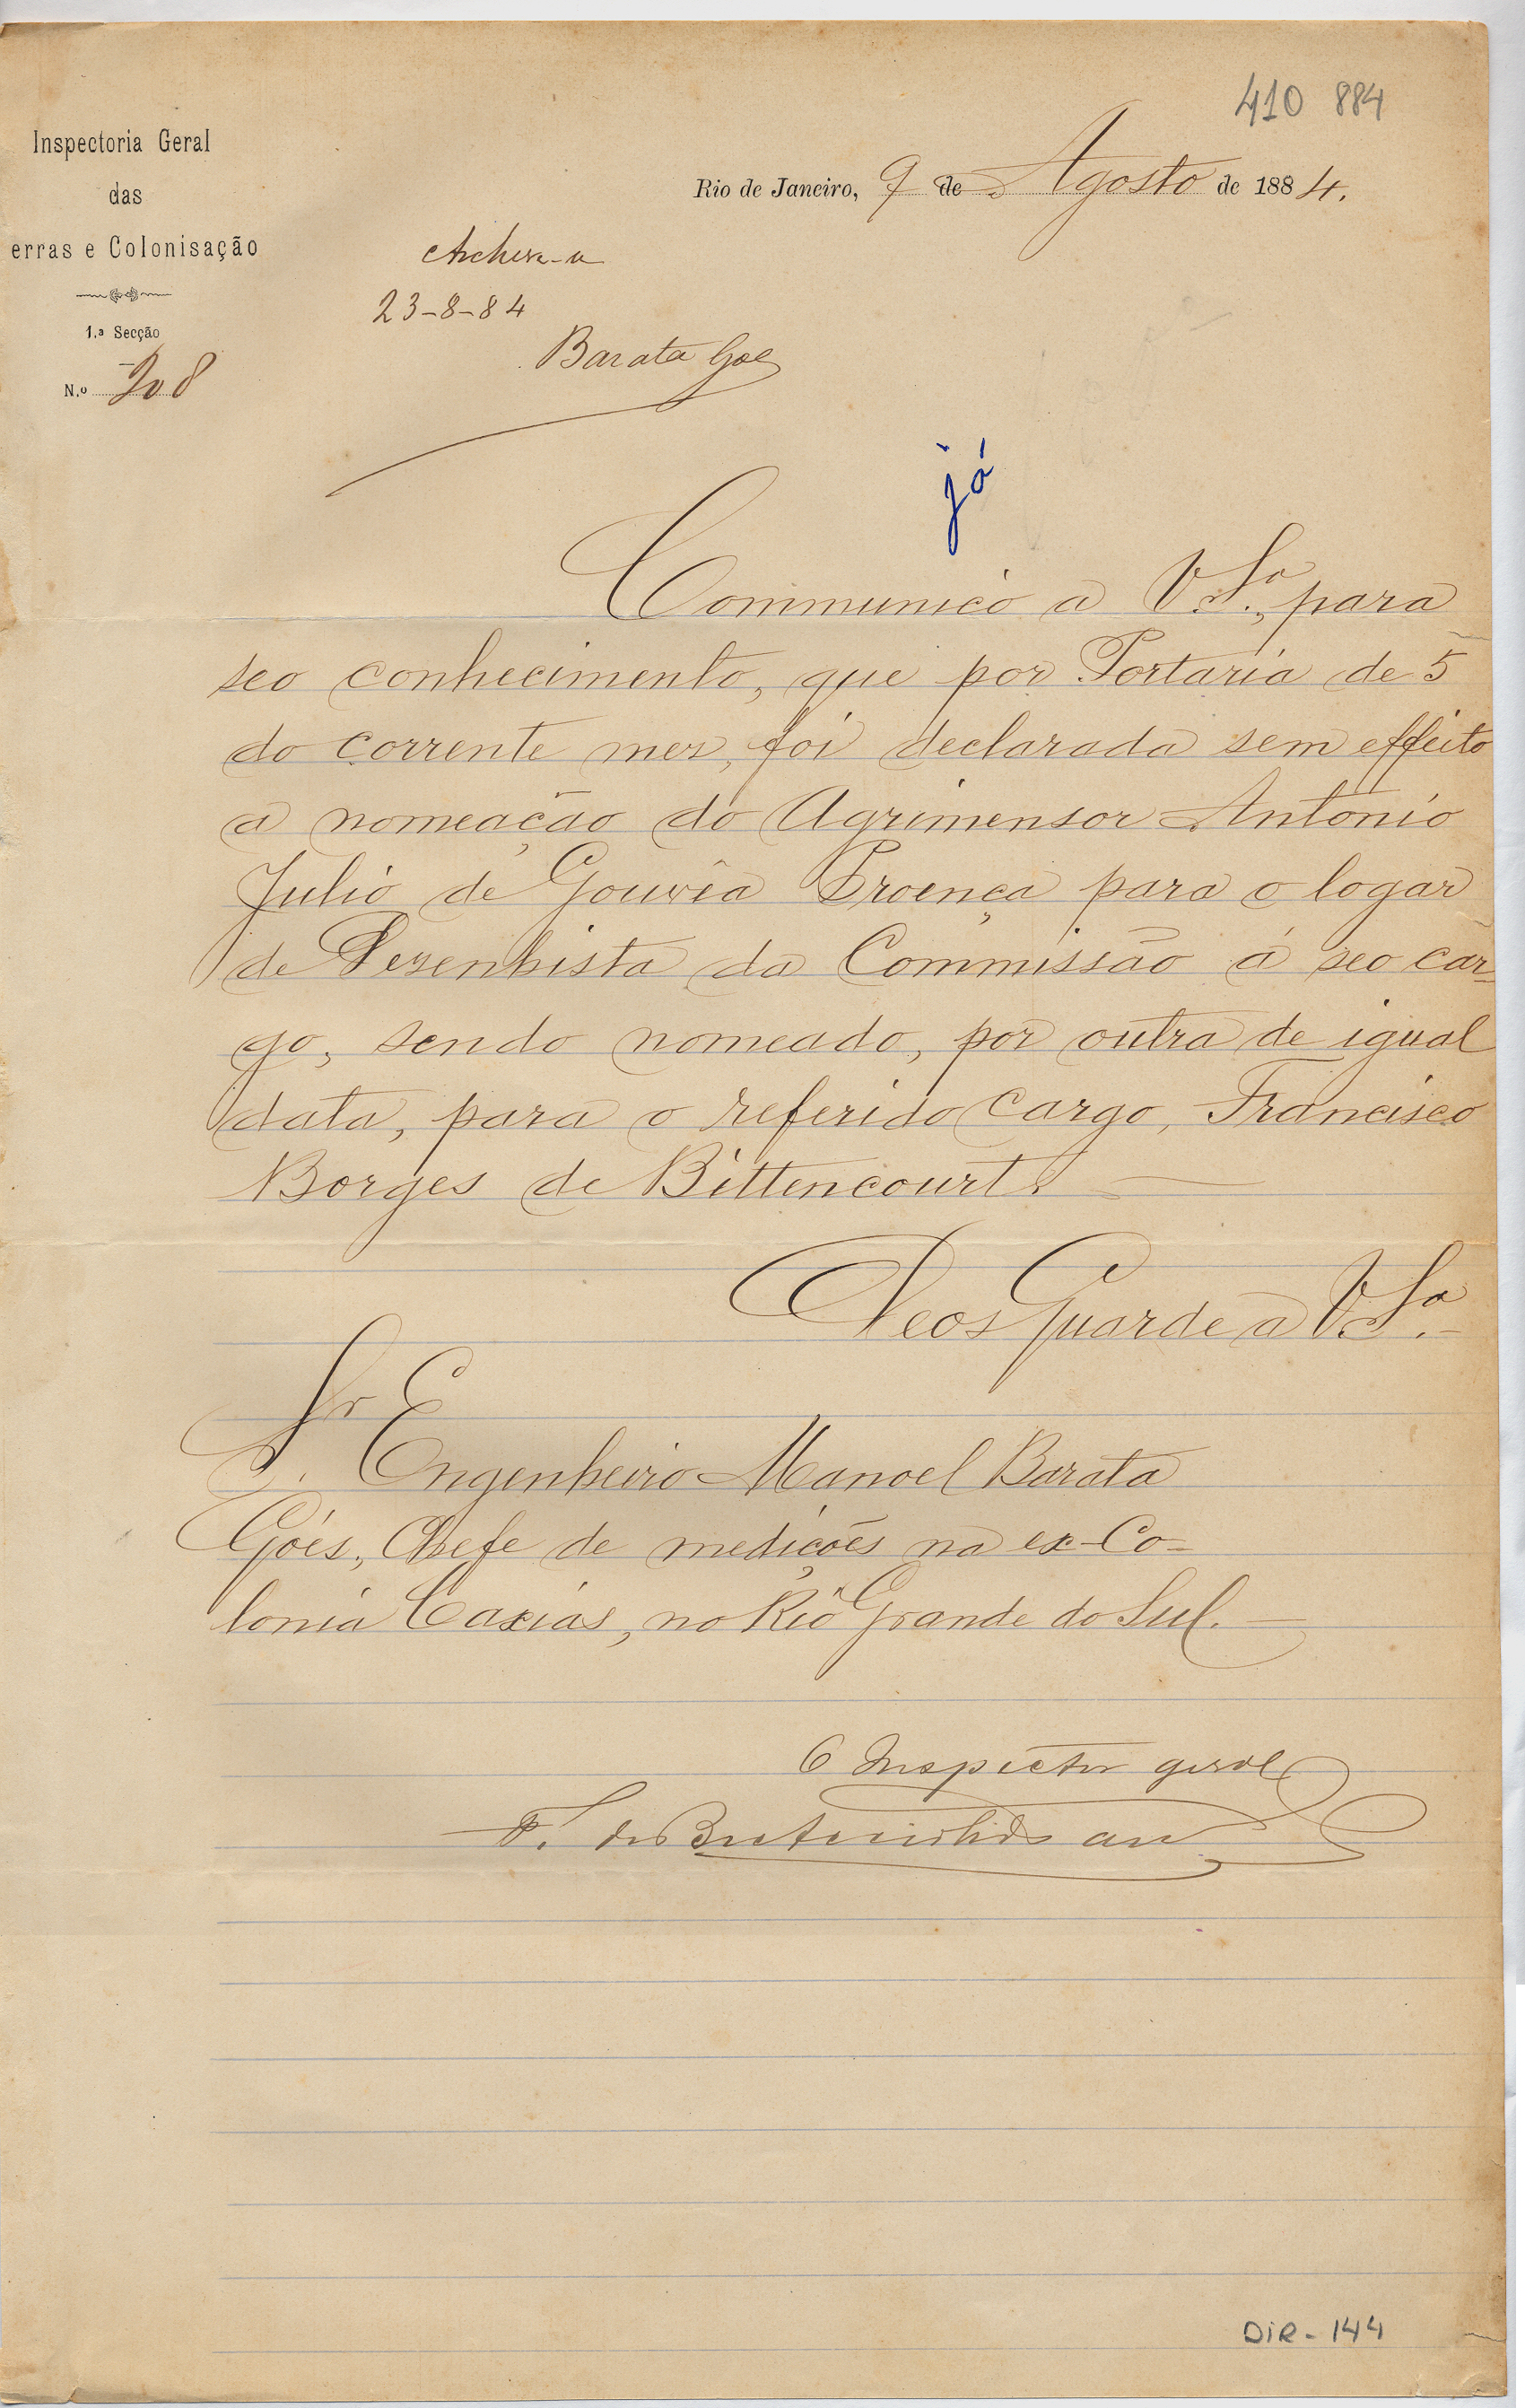 410 884
Inspectoria Geral
das
erras e Colonisação
1.ª Secção
N.º 208
Rio de Janeiro, 9 de Agosto de 1884.
Archive-se
23-8-84
Barata Goes
já
Communico a V. S.ª, para
seo conhecimento, que por Portaria de 5
do corrente mez, foi declarada sem effeito
a nomeação do Agrimensor Antonio
Julio de Gouvêa Proença para o logar
de Dezenhista da Commissão á seo car-
go, sendo nomeado, por outra de igual
data, para o referido cargo, Francisco
Borges de Bittencourt.
Deos Guarde a V. S.ª
Sr. Engenheiro Manoel Barata
Góes, Chefe de medições na ex-Co-
lonia Caxias, no Rio Grande do Sul.
O Inspector geral
F. de B
DIR - 144